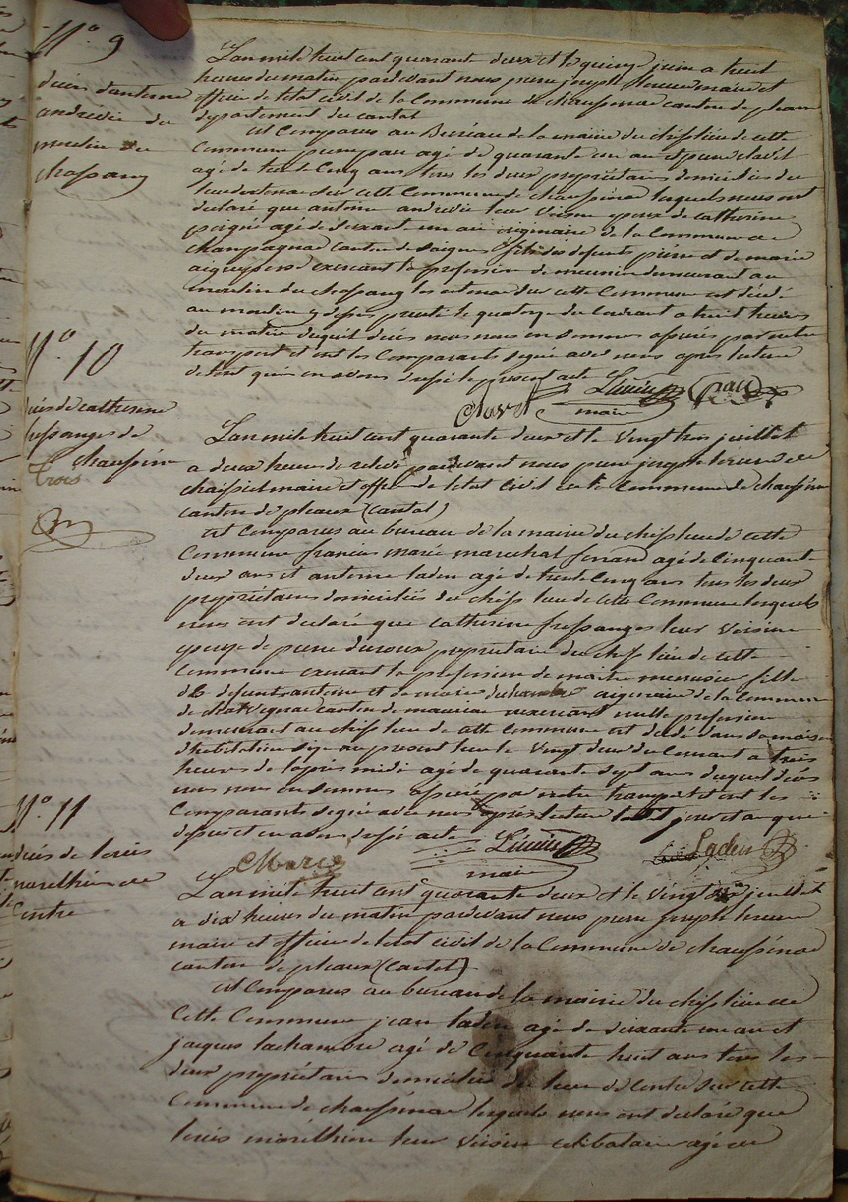 N° 9
décès d'antoine
andrieu du
moulin du
chassang
L'an mile huit cent quarante deux et le quinze juin a huit
heures du matin pardevant nous pierre joseph maire et
officier de l'etat civil de la Commune de chaussenac canton de pleaux
departement du cantal
est Comparus au Bureau de la mairie du chef lieu de cette
Commune pierre agé de quarante un an et pierre clavel
agé de trente Cinq ans tous les deux propriétaires domiciliés du
sur cette Commune de chaussenac lesquels nous ont
declaré que antoine andrieu leur Voisin epoux de catherine
agé de soixante un an originaire de la Commune de
champagnac canton de saignes fils des defunts pierre et de marie
exercant la profession de meunier demeurant au
moulin du chassang sur cette Commune est décédé
au moulin le quatorze du Courant a huit heures
du matin duquel décès nous nous en sommes assurés par notre
transport et ont les Comparants signé avec nous apres lecture
de tout quoi en avons dressé le present acte
Clavel maire
N° 10
décès de catherine
fressanges de
chaussenac
trois
L'an mile huit cent quarante deux et le Vingt trois juillet
a deux heures de relevé pardevant nous pierre joseph
maire et officier de l'etat Civil de la Commune de chaussenac
canton de pleaux (cantal)
est Comparus au bureau de la mairie du chef lieu de cette
Commune francois marie marechal agé de Cinquante
deux ans et antoine laden agé de trente Cinq ans tous les deux
propriétaires domiciliés du chef lieu de cette Commune lesquels
nous ont declaré que catherine fressanges leur Voisine
epouse de pierre propriétaire du chef lieu de cette
Commune exercant la profession de maitre menuisier fille
de defunts antoine et de marie originaire de la Commune
de canton de mauriac exercant nulle profession
demeurant au chef lieu de cette Commune est decedé dans sa maison
d'habitation au present lieu le Vingt deux du Courant a trois
heures de l'apres midi agé de quarante sept ans duquel décès
nous nous en sommes assurés par notre transport et ont les
Comparants signé avec nous après lecture les jours et an que
dessus et en avons dressé acte
maire Laden
N° 11
décès de louis
marelhier de
Contre
L'an mile huit cent quarante deux et le Vingt juillet
a dix heures du matin pardevant nous pierre joseph
maire et officier de l'etat civil de la Commune de chaussenac
canton de pleaux (cantal)
est Comparus au bureau de la mairie du chef lieu de
Cette Commune jean laden agé de soixante un an et
jacques lachambre agé de Cinquante huit ans tous les
deux propriétaires domiciliés du lieu de Contre sur cette
Commune de chaussenac lesquels nous ont declaré que
louis marelhier leur Voisin celibataire agé de